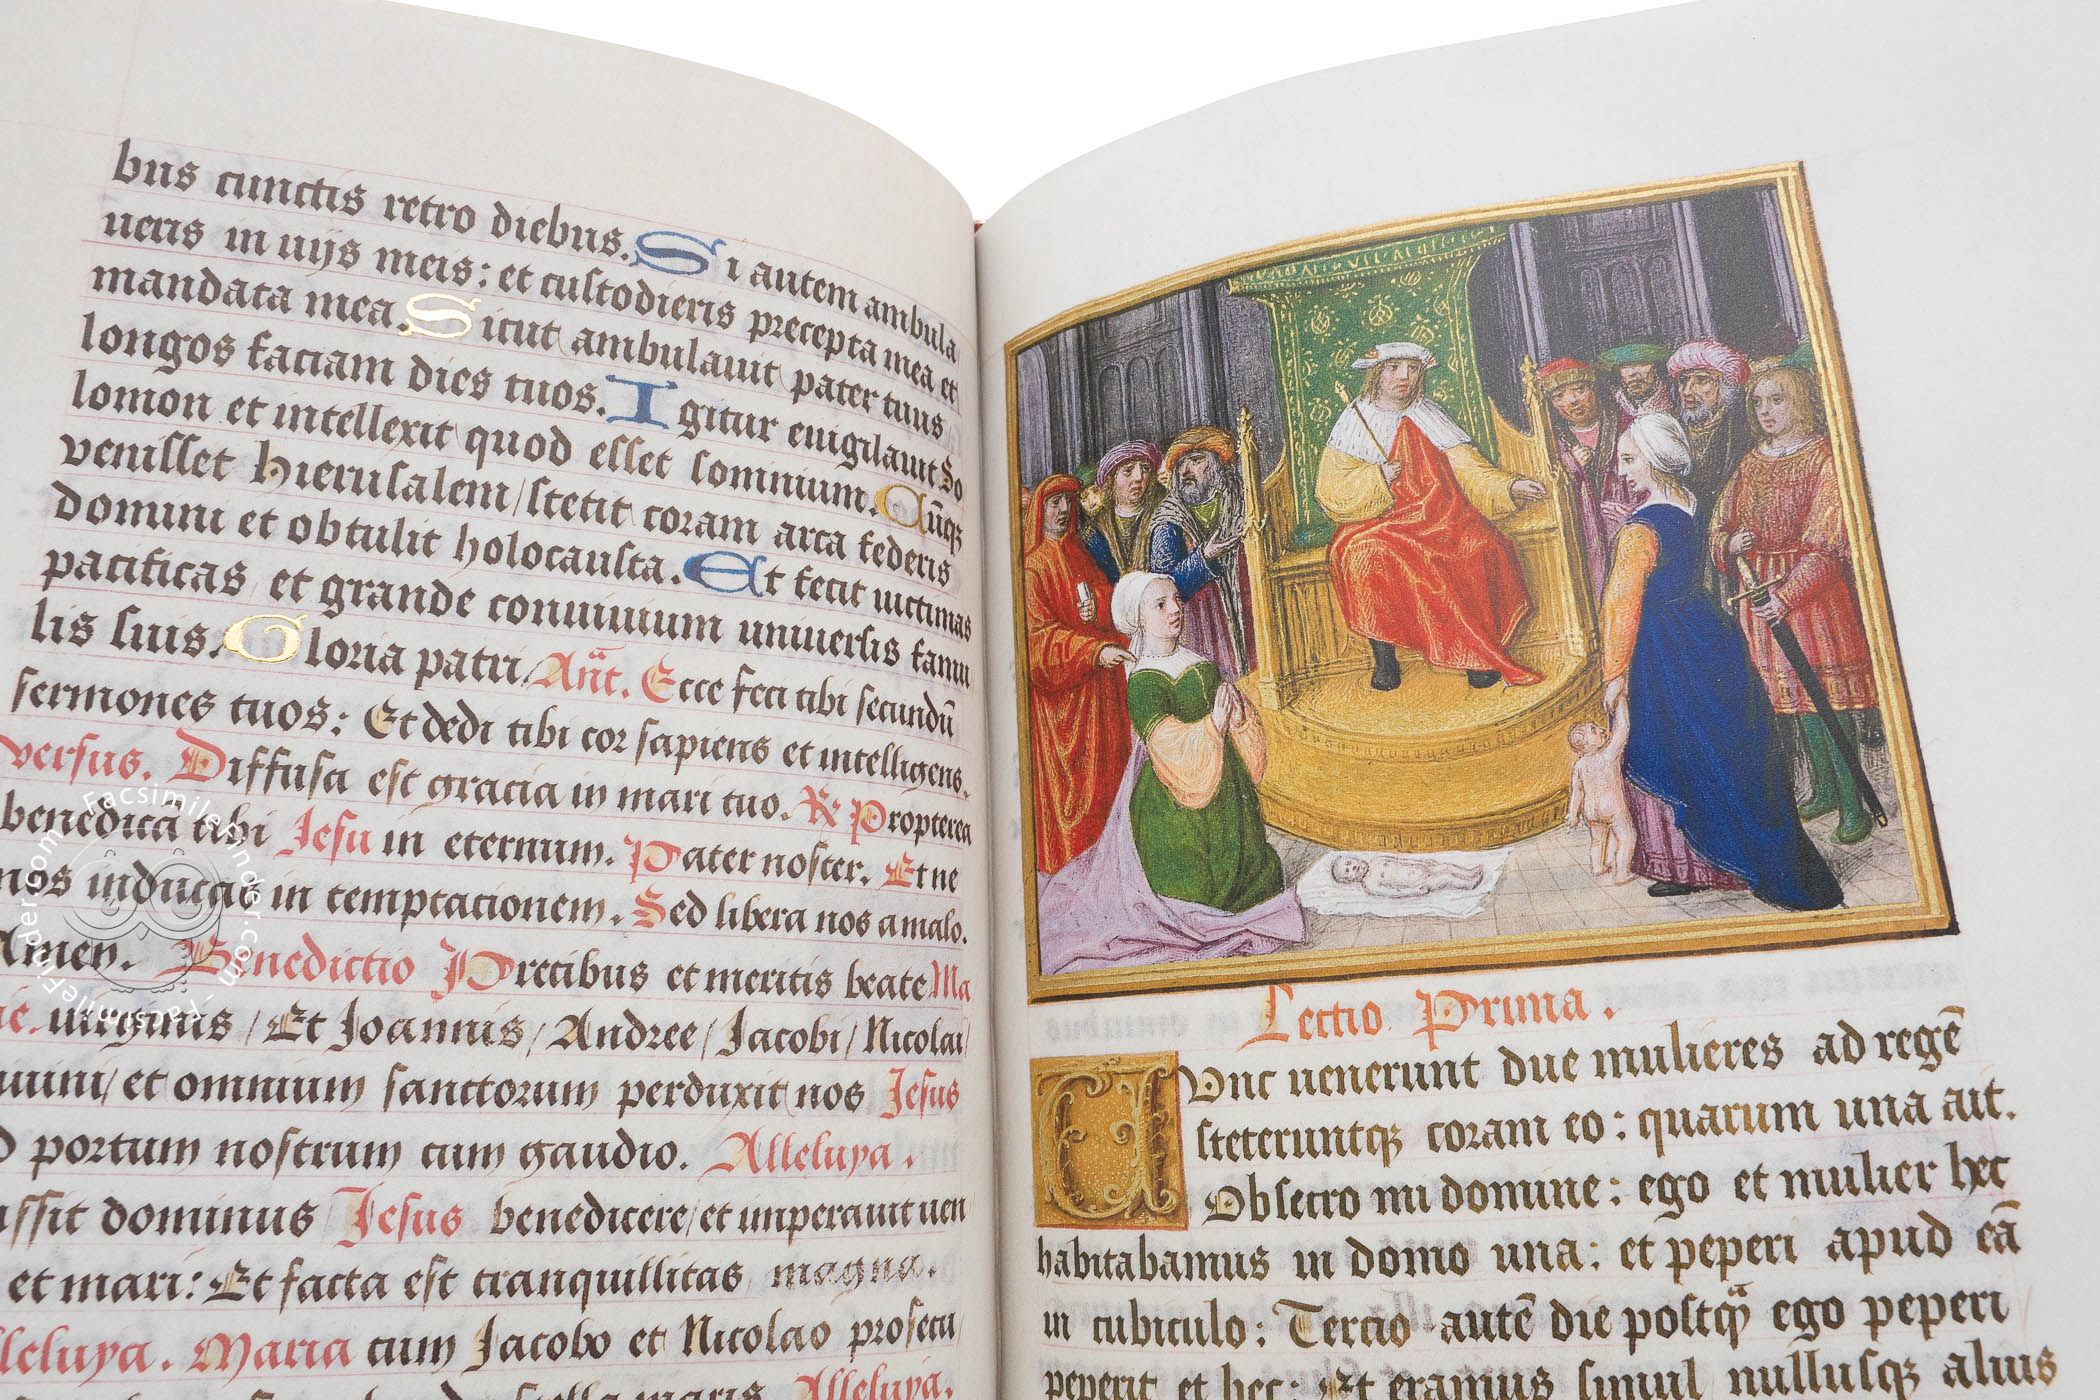 bus cunctis retro diebus. Si autem ambula
ueris in uijs meis: et custodieris precepta mea et
mandata mea. Sicut ambulauit pater tuus
longos faciam dies tuos. Igitur euigilauit So
lomon et intellexit quod esset somnium. Cūqꝫ
venisset hierusalem / stetit coram arca federis
domini et obtulit holocausta. Et fecit uictimas
pacificas et grande conuiuium uniuersis famu
lis suis. Gloria patri Añt. Ecce feci tibi secundū
sermones tuos: Et dedi tibi cor sapiens et intelligens.
versus. Diffusa est gracia in mari tuo. R Propterea
benedica tibi Jesu in eternum. Pater noster. Et ne
nos inducas in temptacionem. Sed libera nos a malo.
Amen. Benedictio Precibus et meritis beate Ma
ie. uirginis / Et Joannis / Andree / Jacobi / Nicolai
uini / et omnium sanctorum perduxit nos Jesus
d portum nostrum cum gaudio. Alleluya.
ussit dominus Jesus benedicere / et imperauit uen
et mari: Et facta est tranquillitas magna.
lleluya. Maria cum Jacobo et Nicolao prosecu
stella maris Alleluya.
Lectio Prima.
Tunc uenerunt due mulieres ad regē
steteruntqꝫ coram eo: quarum una ait.
Obsecro mi domine: ego et mulier hec
habitabamus in domo una: et peperi apud eā
in cubiculo: Tercio autē die postq̄ ego peperi
peperit et hec: Et eramus simul nullusqꝫ alius
FacsimileFinder.com - FacsimileFinder.com